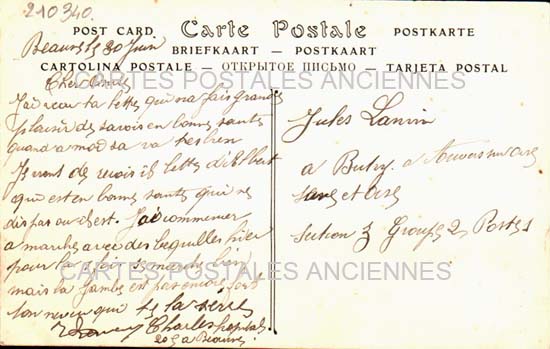 210340.
POST CARD Carte Postale POSTKARTE
BRIEFKAART — POSTKAART
CARTOLINA POSTALE — ОТКРЫТОЕ ПИСЬМО — TARJETA POSTAL
CARTES POSTALES ANCIENNES
le 30 Juin
Cher
J'ai recu ta lettre qui ma fais grande
plaisir de savoir en bonne sante
quand a moi sa va tres bien
de recoir lettre d'Albert
qui est en bonne sante qui ne
dis pas ou il est. J'ai commencer
a marche avec des bequilles hier
pour la
mais la Jambe est pas encore fort
ton neveu qui te la serre
Charles hopital
20 a
Jules Lanvin
a Butry. a Auvers sur Oise
Seine et Oise
section 3 Groupe 2 Poste 1
CARTES POSTALES ANCIENNES